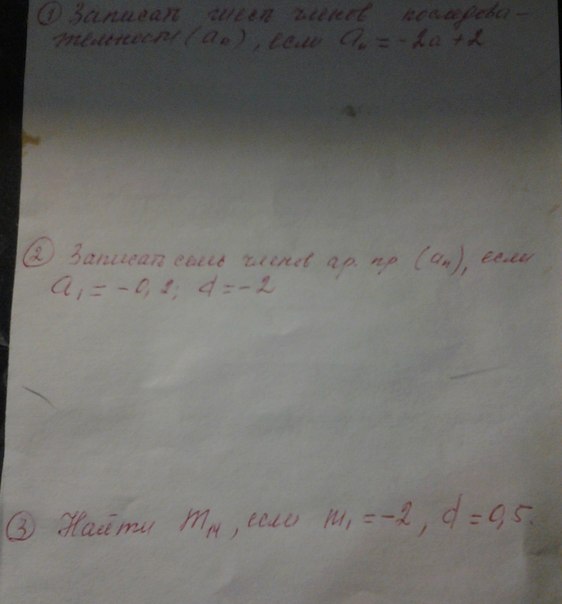 ① Записать шесть членов последова-
тельности (aₙ), если aₙ = -2a + 2
② Записать семь членов ар. пр (aₙ), если
a₁ = -0,2; d = -2
③ Найти если m₁ = -2, d = 0,5.